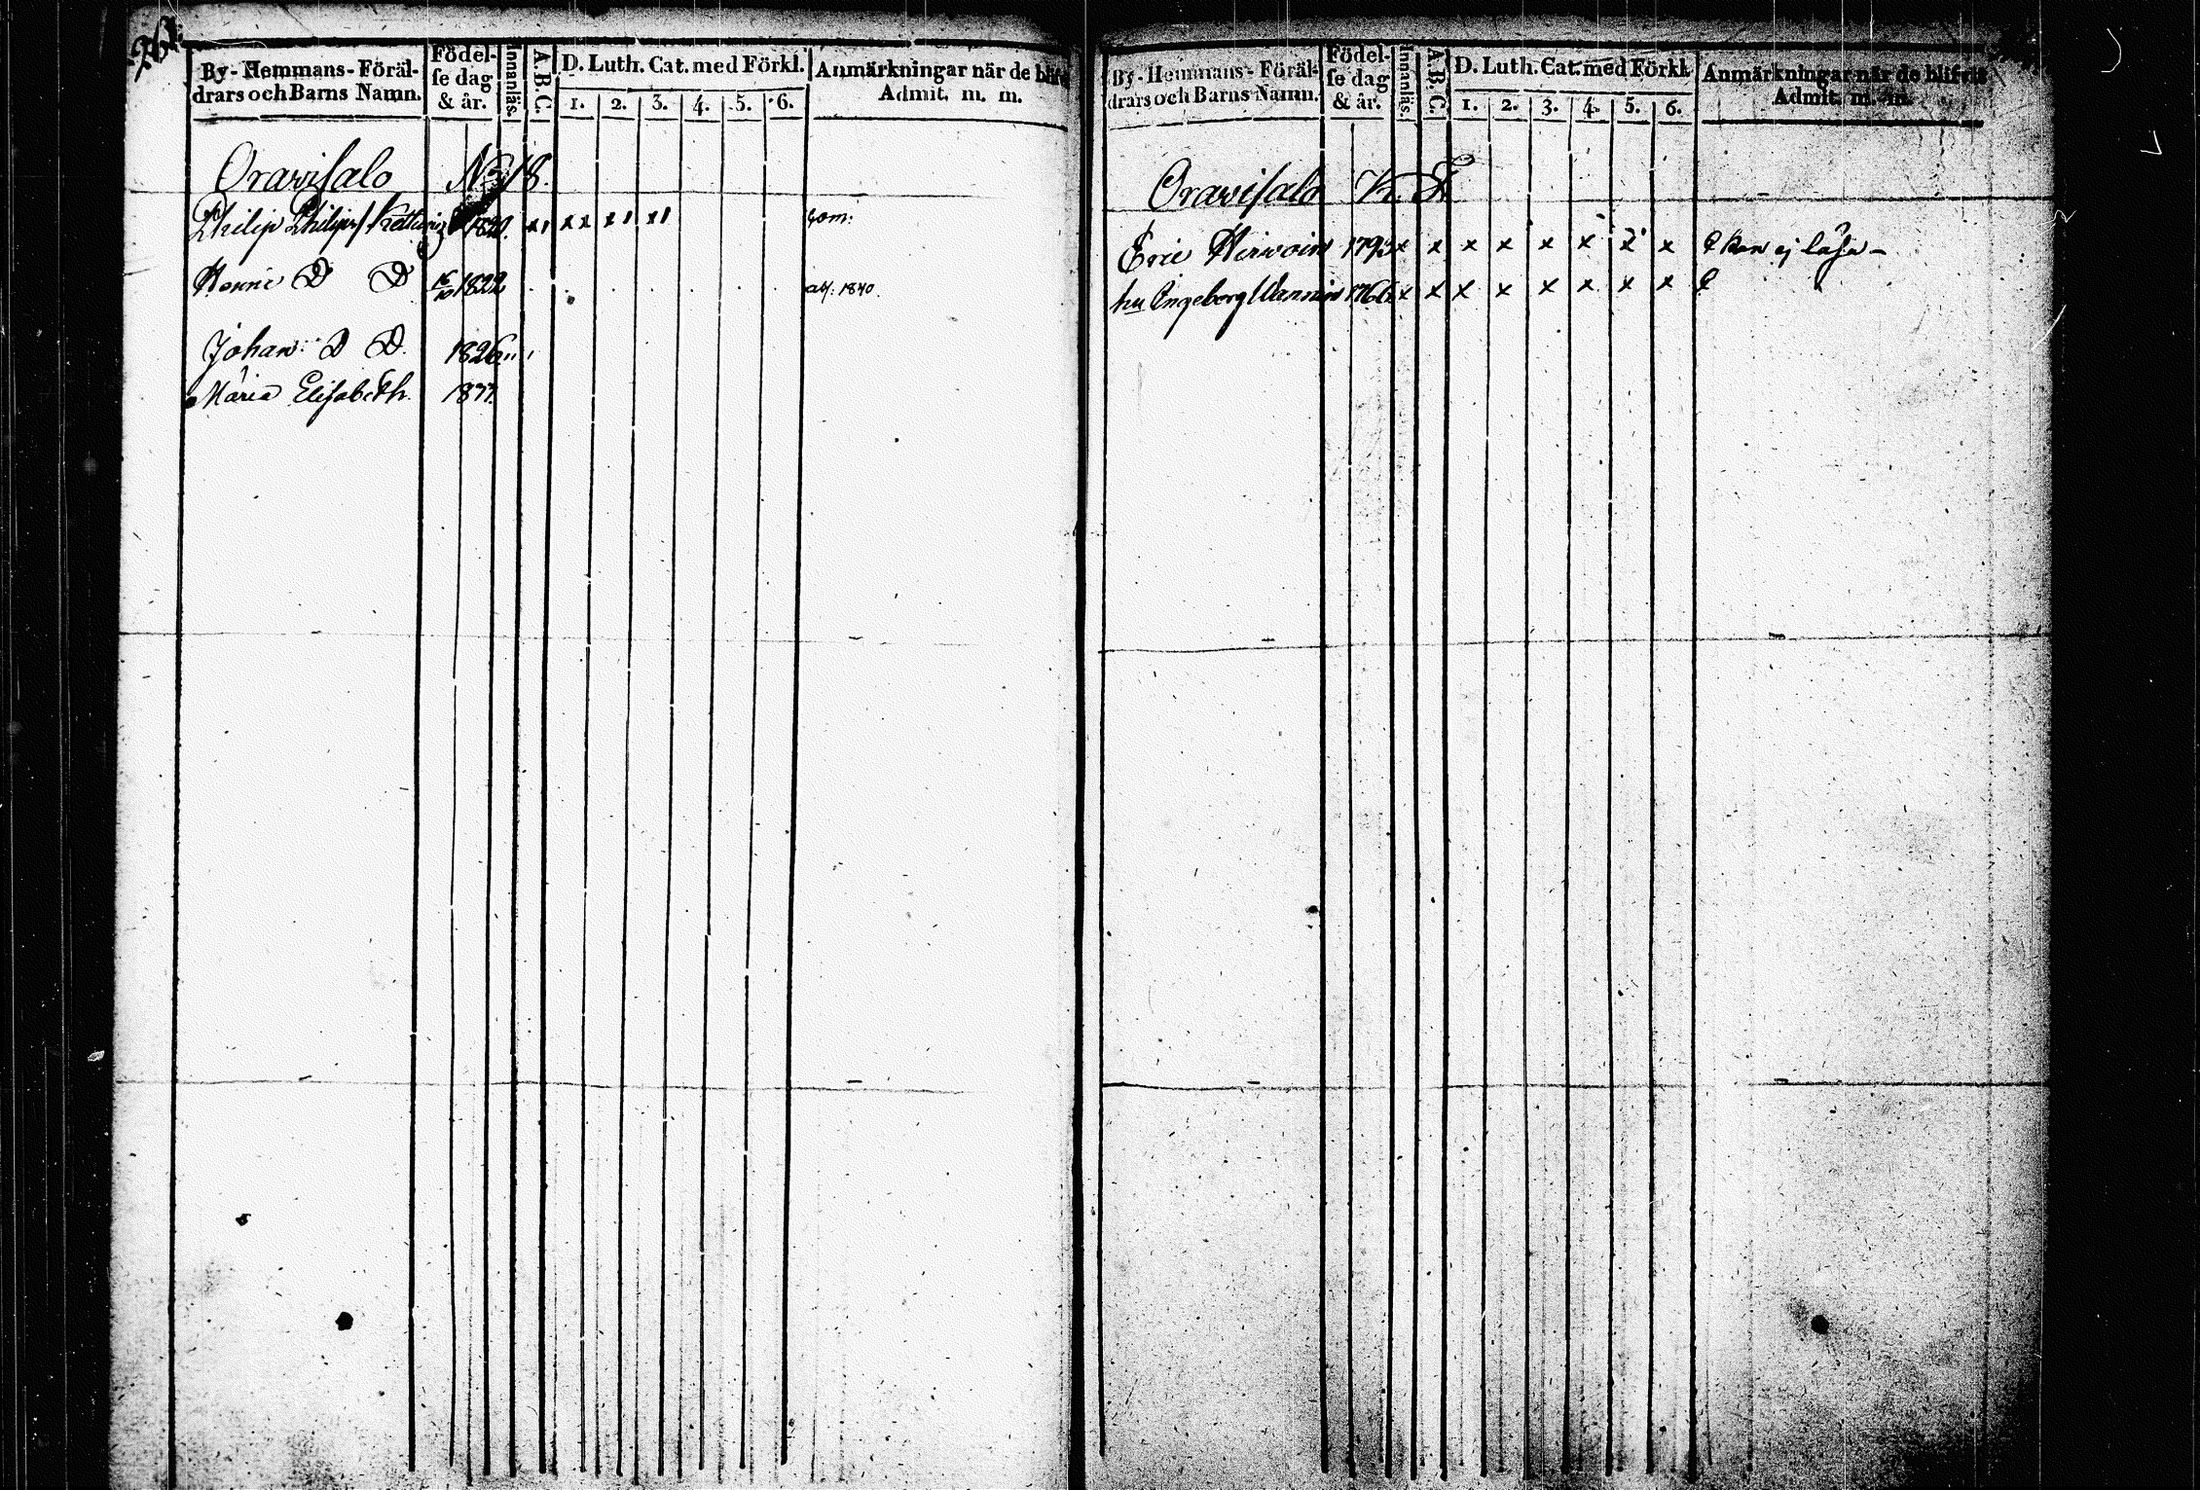 By- Hemmans- Föräl-
drars och Barns Namn.
Födel-
se dag
& år.
Innanläs.
A.B.C.
D. Luth. Cat. med Förkl.
1. 2. 3. 4. 5. 6.
Anmärkningar när de blifv
Admit. m. m.
Oravisalo No 18.
Philip Philips 1820. x x x x
com:
1822
adm: 1840.
Johan D D. 1826
Maria Elisabeth.
By- Hemmans- Föräl-
drars och Barns Namn.
Födel-
se dag
& år.
Innanläs.
A.B.C.
D. Luth. Cat. med Förkl.
1. 2. 3. 4. 5. 6.
Anmärkningar när de blifvit
Admit. m. m.
Oravisalo
Eric Hirvoin 1793 x x x x x x x kan ej läsa -
hu Ingeborg Vannin 1766 x x x x x x x x